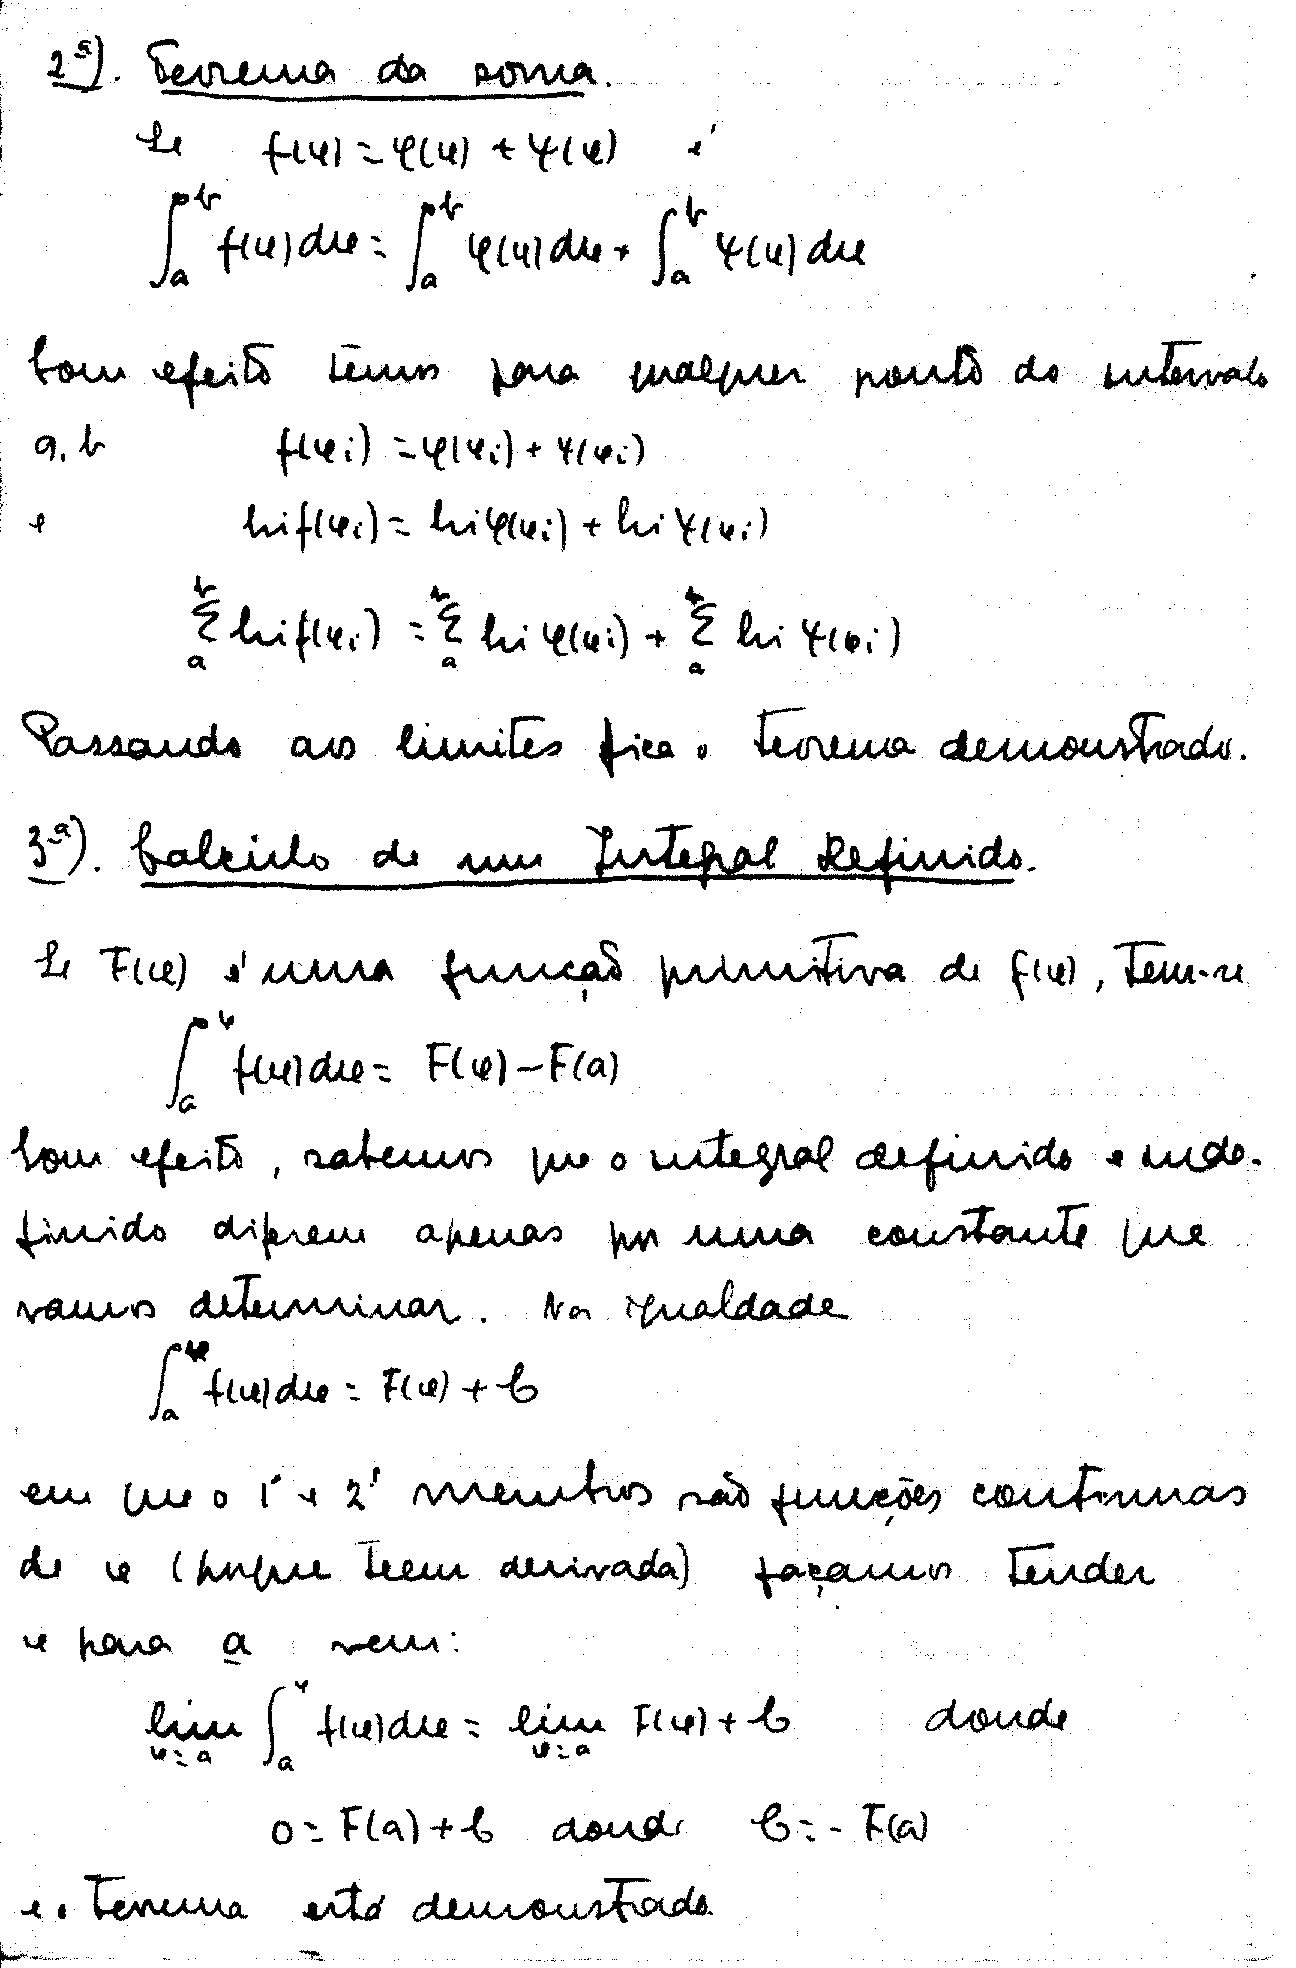 2ª). Teorema da soma.
Se f(x) = φ(x) + ψ(x) é
∫_a^b f(x)dx = ∫_a^b φ(x)dx + ∫_a^b ψ(x)dx
Com efeito temos para qualquer ponto do intervalo
a, b f(xi) = φ(xi) + ψ(xi)
e hi f(xi) = hi φ(xi) + hi ψ(xi)
Σ_a^b hi f(xi) = Σ_a^b hi φ(xi) + Σ_a^b hi ψ(xi)
Passando aos limites fica o teorema demonstrado.
3ª). Calculo de um Integral Definido.
Se F(x) é uma função primitiva de f(x), tem-se
∫_a^x f(x)dx = F(x) - F(a)
Com efeito, sabemos que o integral definido e inde-
finido diferem apenas por uma constante que
vamos determinar. Na igualdade
∫_a^x f(x)dx = F(x) + C
em que o 1º e 2º membros são funções continuas
de x (porque teem derivada) façamos tender
x para a vem:
lim_{x=a} ∫_a^x f(x)dx = lim_{x=a} F(x) + C donde
0 = F(a) + C donde C = - F(a)
e o teorema está demonstrado